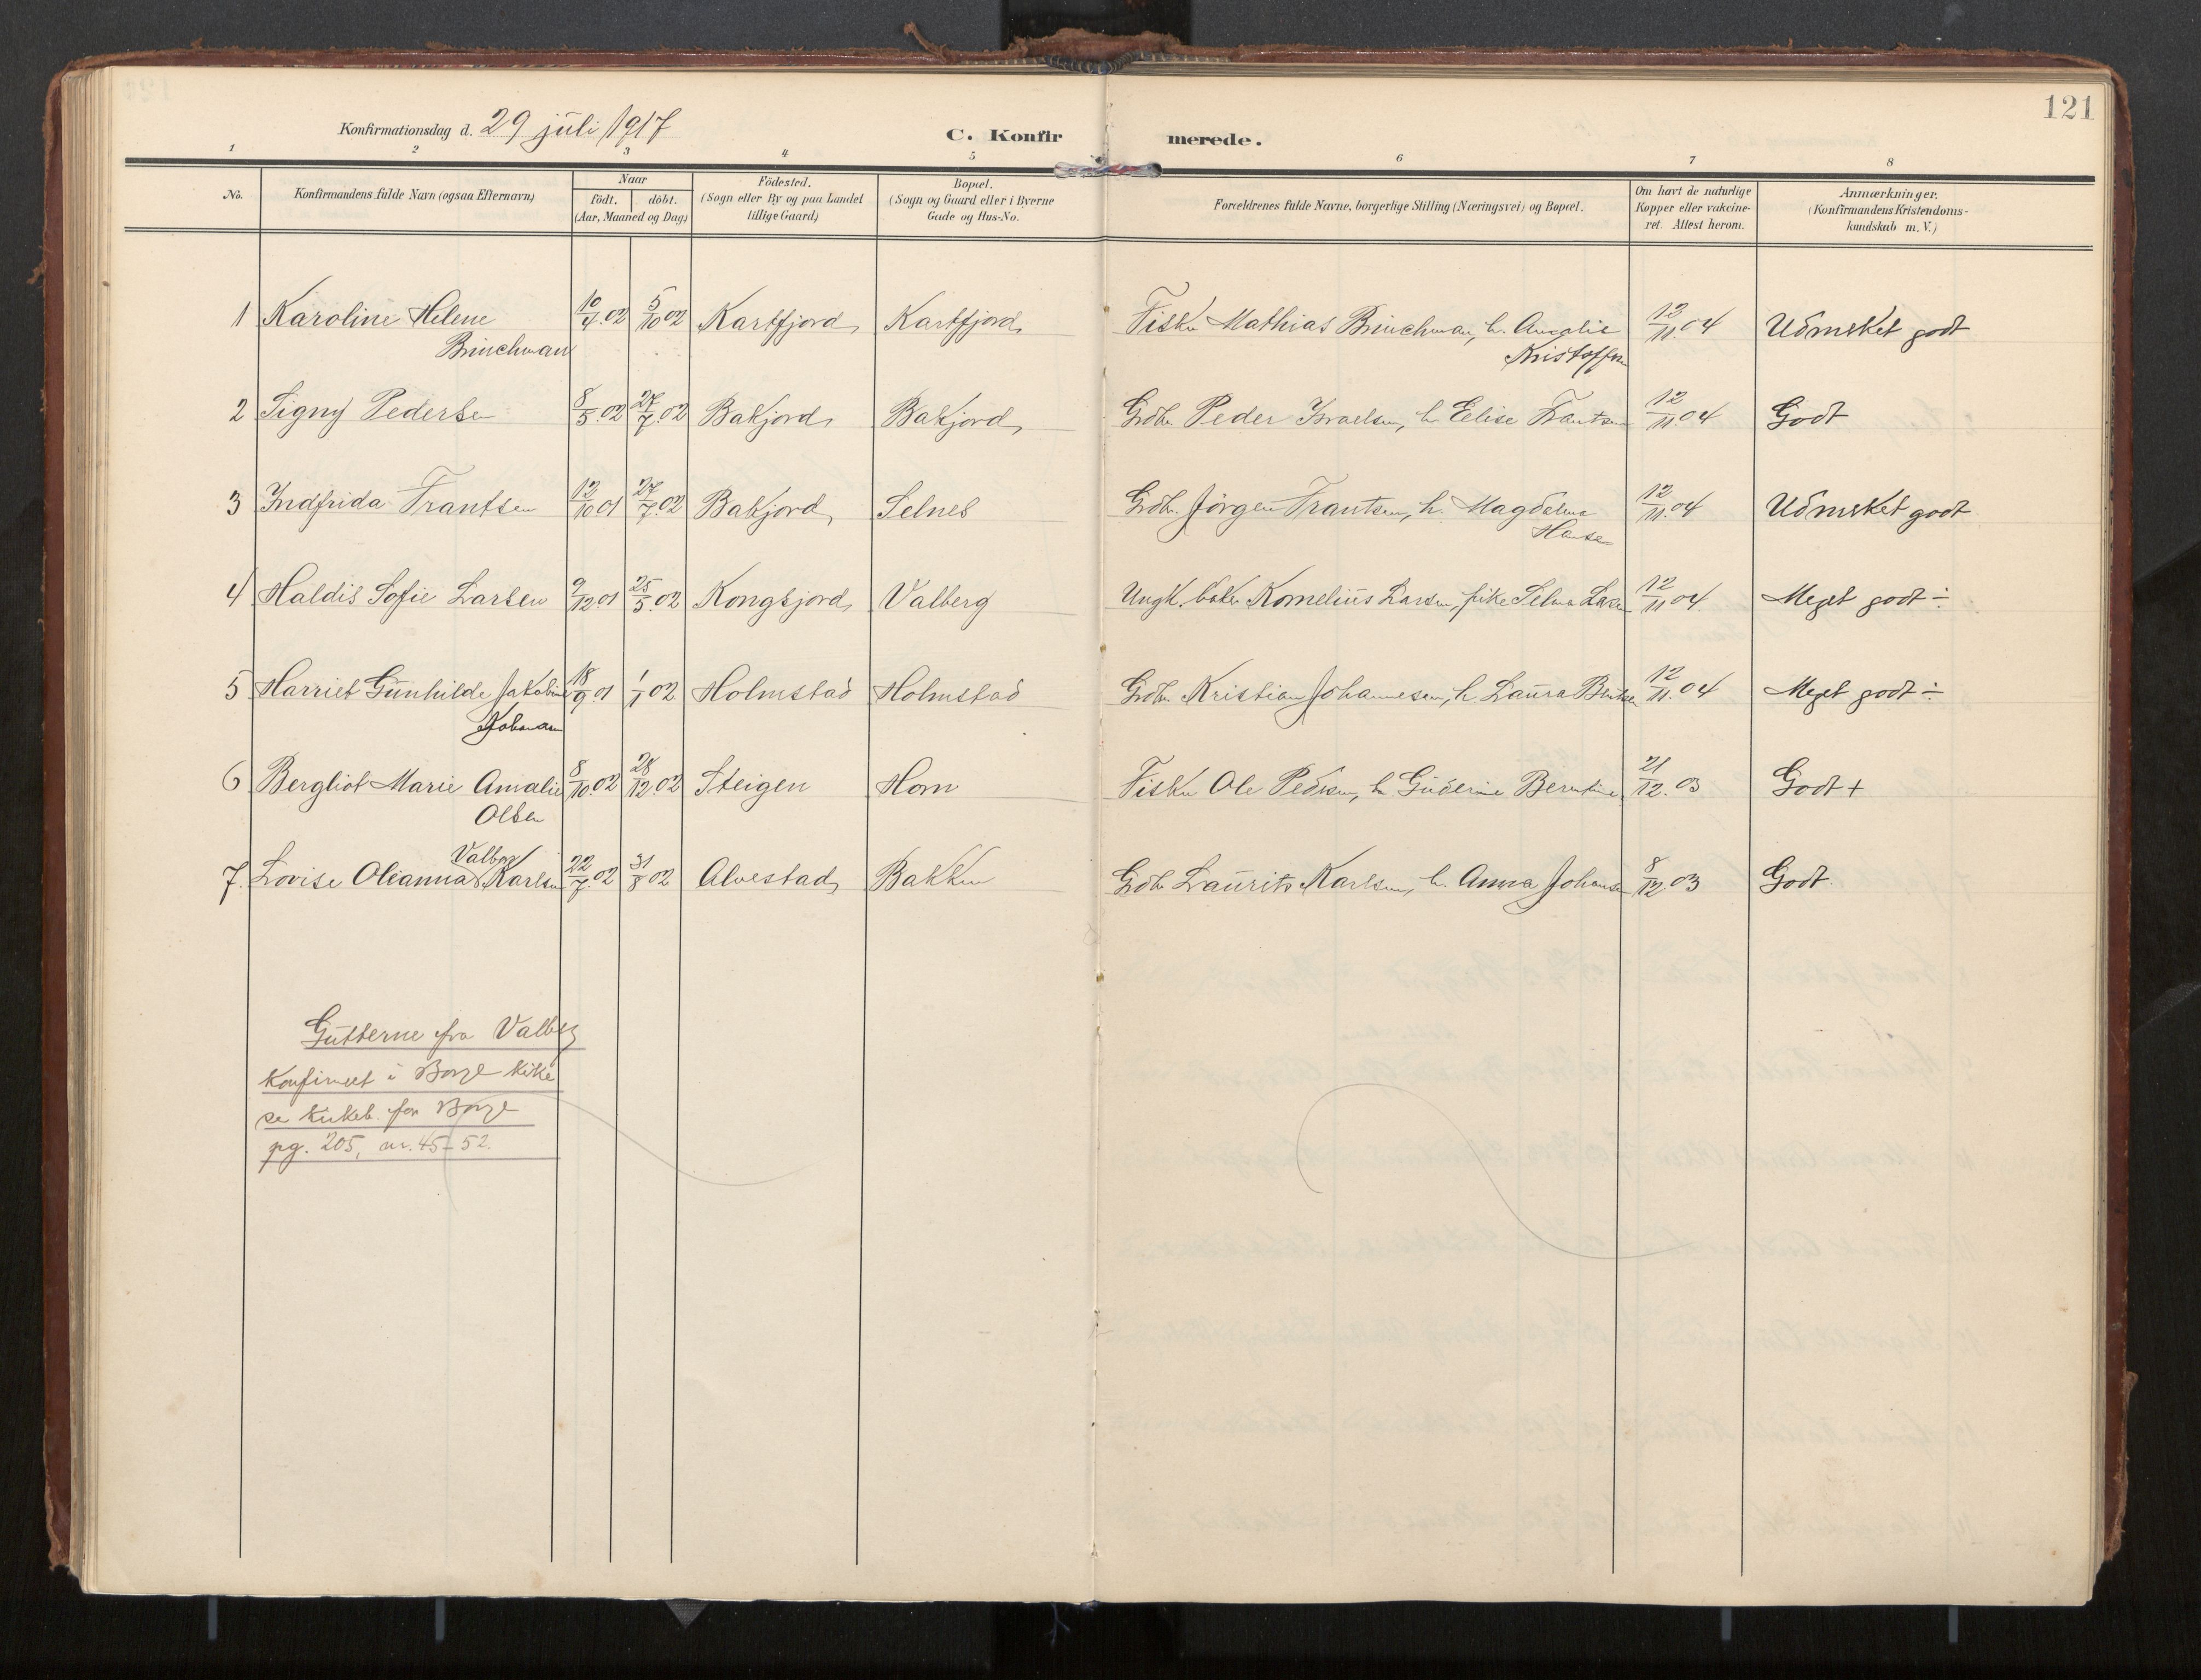 121
Konfirmationsdag d. 29 juli 1917
C. Konfirmerede.
1 2 3 4 5 6 7 8
No.
Konfirmandens fulde Navn (ogsaa Efternavn)
Naar
födt. döbt.
(Aar, Maaned og Dag)
Födested.
(Sogn eller By og paa Landet
tillige Gaard)
Bopæl.
(Sogn og Gaard eller i Byerne
Gade og Hus-No.
Forældrenes fulde Navne, borgerlige Stilling (Næringsvei) og Bopæl.
Om havt de naturlige
Kopper eller vakcine-
ret. Attest herom.
Anmærkninger.
(Konfirmandens Kristendoms-
kundskab m. V.)
1 Karoline Helene 10/4.02 5/10 02 Kartfjord, Kartfjord, Fisker Mathias Brinchman, h. Angalie 12/11.04 Udmerket godt
Brinchman Kristoffersen
2 Signy Pedersen 8/5.02 27/7.02 Bakjord, Bakjord, Grdbr. Peder Israelsen, h. Eelise Frantsen 12/11.04 Godt
3 Indfrida Frantsen 12/10 01 27/7.02 Bakjord, Selnes Grdbr. Jörgen Frantsen, h. Magdalena 12/11.04 Udmerket godt
Hansen
4 Haldis Sofie Larsen 9/12 01 25/5.02 Kongsjord, Valberg Ungk. baker Kornelius Larsen, pike Selma Larsen 12/11 04 Meget godt ÷
5 Harriet Gunhilde Jakobine 18/9.01 1/1 02 Holmstad Holmstad Grdbr. Kristian Johannesen, h. Laura Bentsen 12/11.04 Meget godt ÷
Johansen
6 Bergliot Marie Amalie 8/10.02 28/12.02 Steigen Horn Fisker Ole Pedersen, h. Guderine Berntine 21/12.03 Godt +
Olsen
Valborg
7. Lovise Olianna Karlsen 22/7.02 31/8 02 Alvestad, Bakken Grdbr Laurits Karlsen, h. Anna Johansen 8/12.03 Godt.
Gutterne fra Valberg
konfirmert i Borge kirke
se kirkeb. for Borge
pg. 205, nr. 45-52.